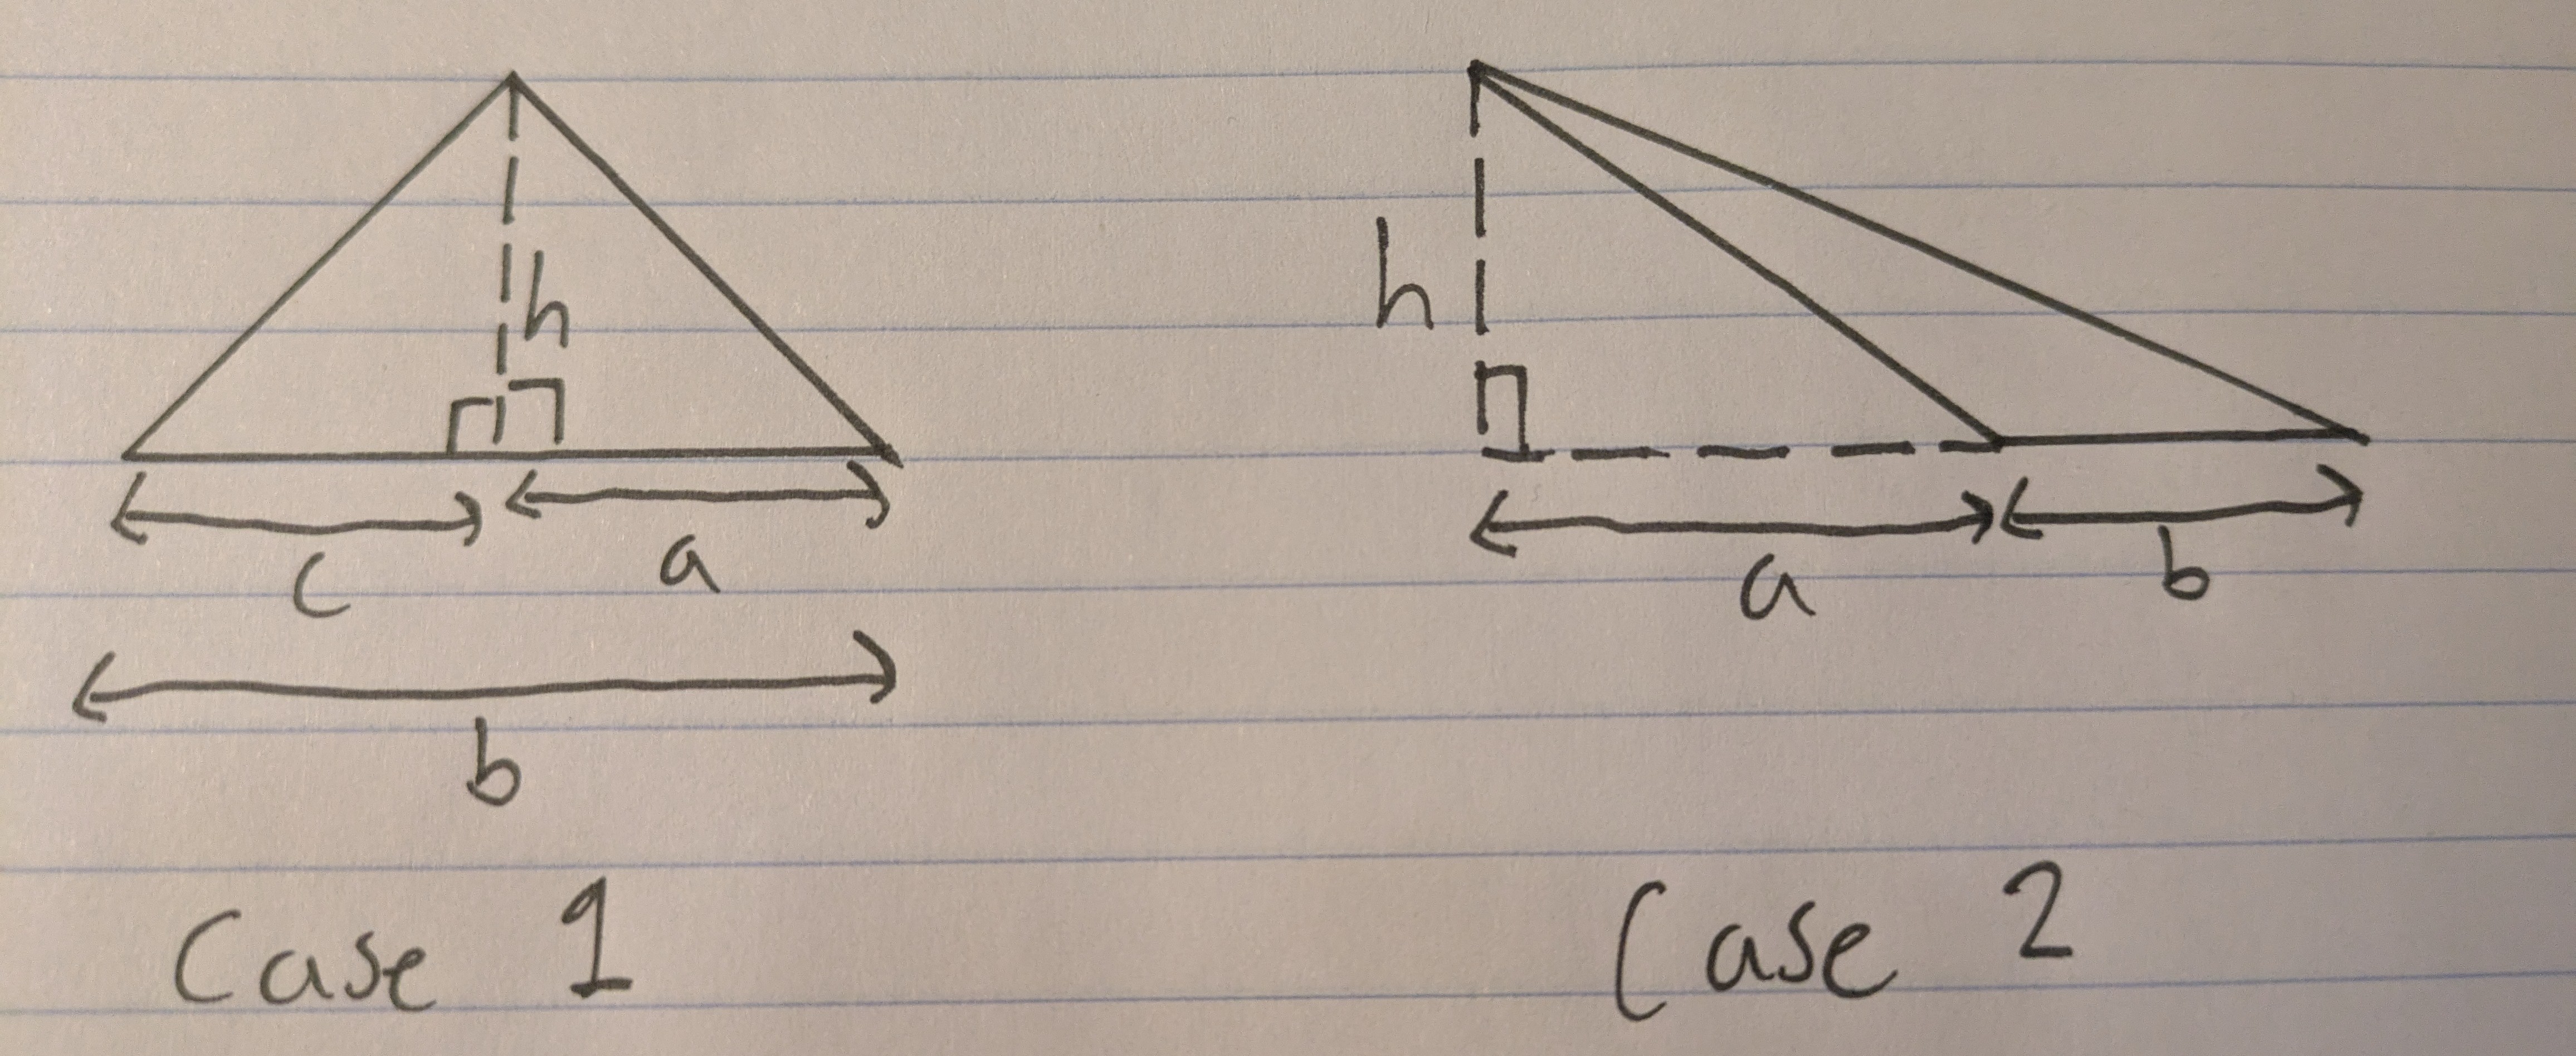 h
c a
b
Case 1
h
a b
Case 2